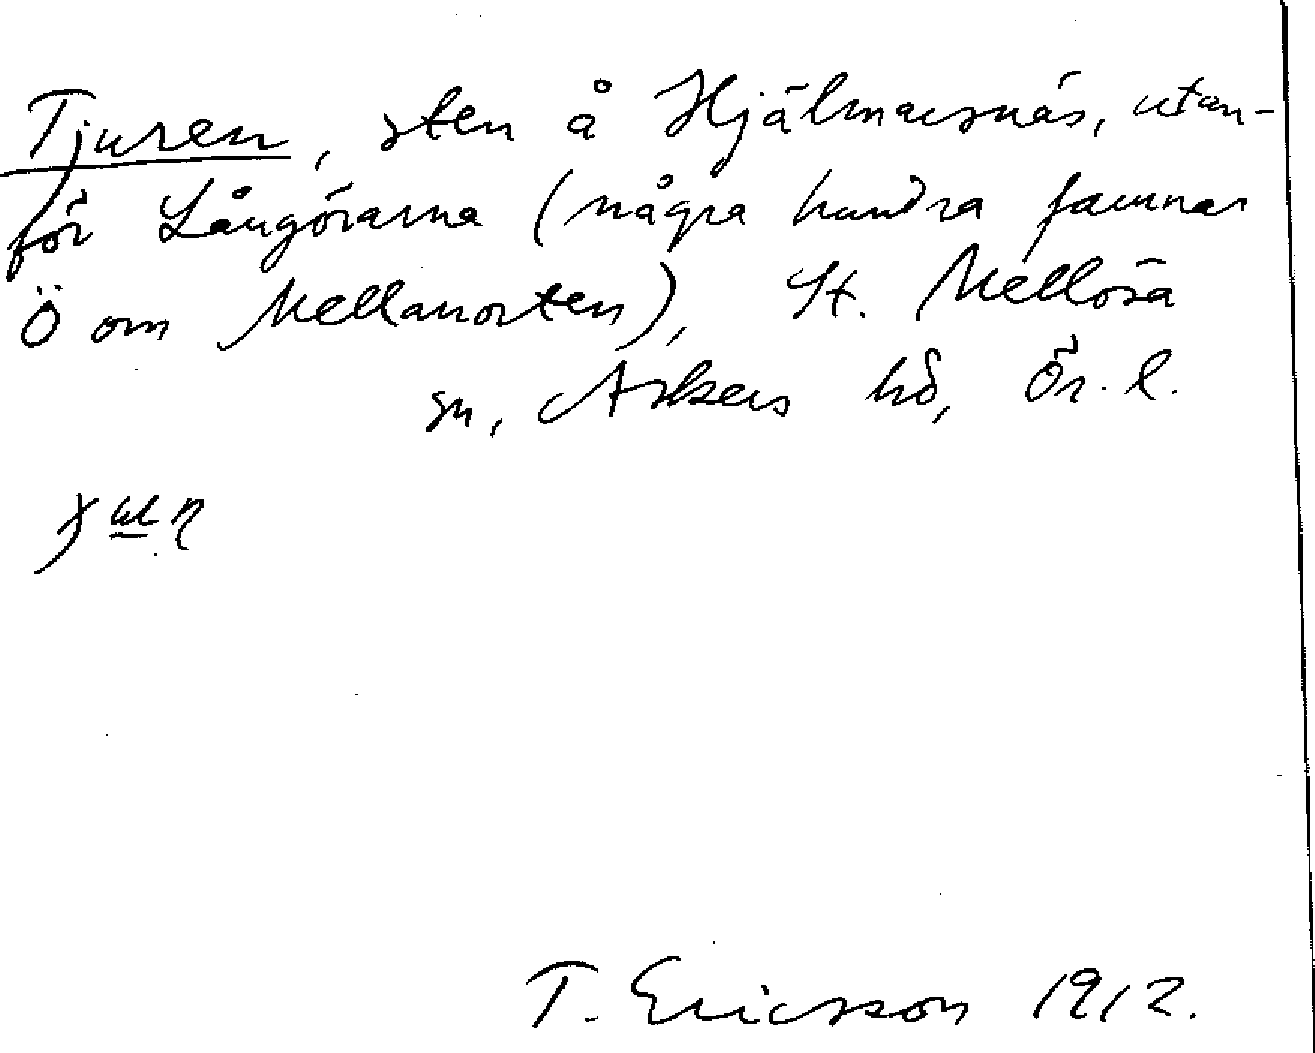 Tjuren, sten å Hjälmarsnäs, utan-
för Långörarna (några hundra famnar
Ö om Mellanorten), St. Mellösa
sn, Askers hd, Ör. l.
T. Ericsson 1912.